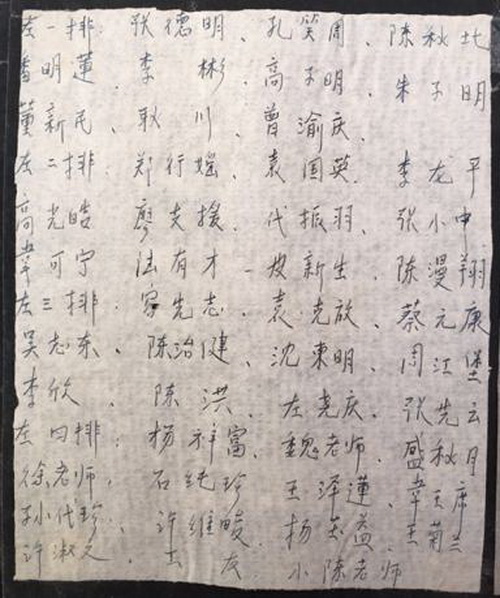 左一排: 张德明、孔笑周、陈秋北
香明莲、李 彬、高子明、朱子明
董新民、耿 川、曾渝庆、
左二排: 郑行媱、袁国英、李龙平
高光皓 廖支援、代振羽、张小申
韦可宁 法有才、皮新生、陈漫翔
左三排: 家先志、袁克放、蔡元康
吴志东、陈治健、沈東明、周江堡
李欣、陈洪、左尧庆、张先云
左四排: 杨祥富、魏老师、盛秋月
徐老师、石纯珍 王泽莲、韦天席
孙小代珍、许维畯 杨玉益、王菊兰
许淑文、士友、小陈老师